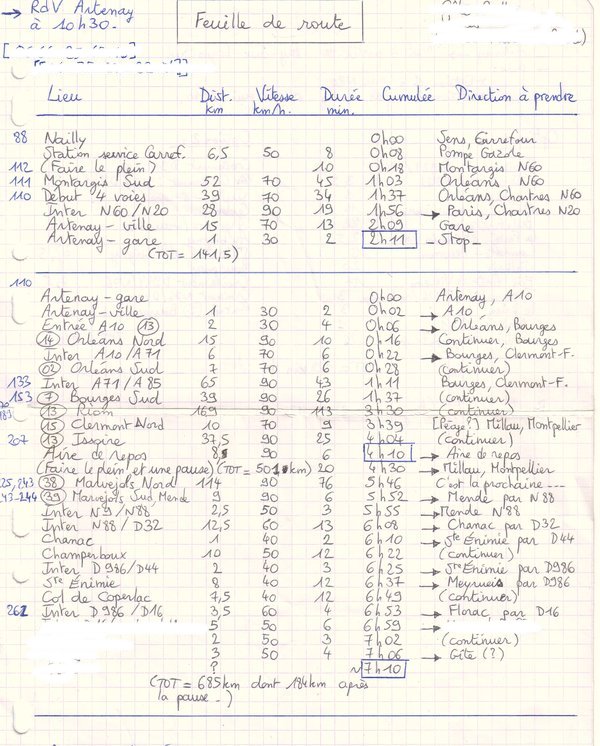 → RdV Artenay
à 10h30.
Feuille de route
Lieu Dist. km Vitesse km/h. Durée min. Cumulée Direction à prendre
88 Nailly 0h00 Sens, Carrefour
Station service Carref. 6,5 50 8 0h08 Pompe Gazole
112 (Faire le plein) 10 0h18 Montargis N60
111 Montargis Sud 52 70 45 1h03 Orléans N60
110 Début 4 voies 39 70 34 1h37 Orléans, Chartres N60
Inter N60/N20 28 90 19 1h56 → Paris, Chartres N20
Artenay-ville 15 70 13 2h09 Gare
Artenay-gare 1 30 2 2h11 -Stop-
(TOT = 141,5)
110
Artenay-gare 0h00 Artenay, A10
Artenay-ville 1 30 2 0h02 → A10
Entrée A10 (13) 2 30 4 0h06 → Orléans, Bourges
(14) Orléans Nord 15 90 10 0h16 Continuer, Bourges
Inter A10/A71 6 70 6 0h22 → Bourges, Clermont-F.
(02) Orléans Sud 7 70 6 0h28 (continuer)
133 Inter A71/A85 65 90 43 1h11 Bourges, Clermont-F.
153 (7) Bourges Sud 39 90 26 1h37 (continuer)
(13) Riom 169 90 113 3h30 (continuer)
(15) Clermont Nord 10 70 9 3h39 [Péage?] Millau, Montpellier
207 (13) Issoire 37,5 90 25 4h04 (continuer)
Aire de repos 8, 90 6 4h10 → Aire de repos
(Faire le plein, et une pause) (TOT = 501km) 20 4h30 → Millau, Montpellier
25,243 (38) Marvejols Nord 114 90 76 5h46 C'est la prochaine ---
243-244 (39) Marvejols Sud, Mende 9 90 6 5h52 → Mende par N88
Inter N9/N88 2,5 50 3 5h55 → Mende N88
Inter N88/D32 12,5 60 13 6h08 → Chanac par D32
Chanac 1 40 2 6h10 → Ste Enimie par D44
Champerboux 10 50 12 6h22 (continuer)
Inter D986/D44 2 40 3 6h25 → Ste Enimie par D986
Ste Enimie 8 40 12 6h37 → Meyrueis par D986
Col de Coperlac 7,5 40 12 6h49 (continuer)
262 Inter D986/D16 3,5 60 4 6h53 → Florac, par D16
5 50 6 6h59 →
2 50 3 7h02 (continuer)
3 50 4 7h06 → Gîte (?)
? ~7h10
(TOT = 685km dont 184km après
la pause -)